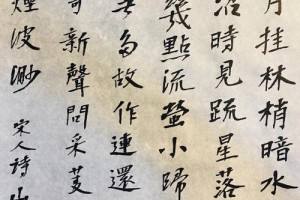 月挂林梢暗水
沼時見疏星落
幾點流螢小歸
無多故作連還
寄新聲問采菱
煙波渺
宋人詩